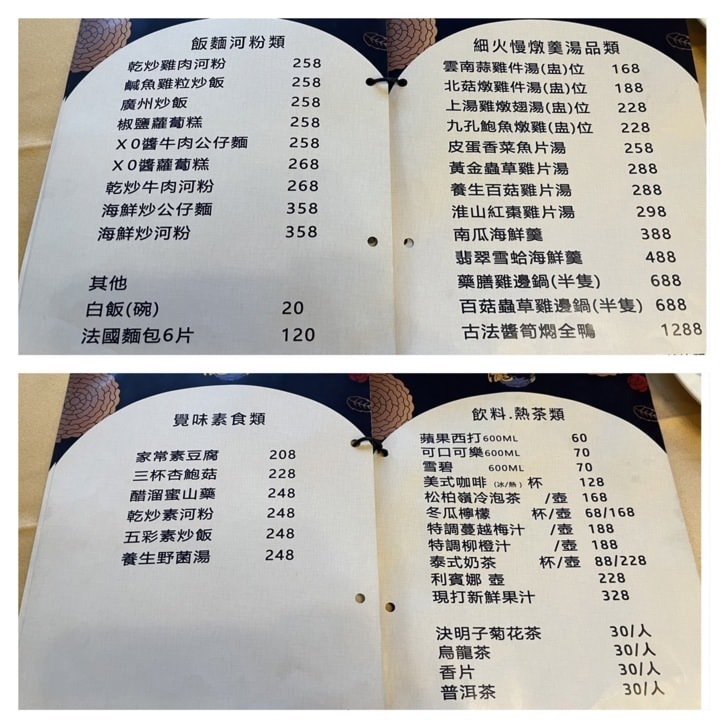 飯麵河粉類
乾炒雞肉河粉 258
鹹魚雞粒炒飯 258
廣州炒飯 258
椒鹽蘿蔔糕 258
XO醬牛肉公仔麵 258
XO醬蘿蔔糕 268
乾炒牛肉河粉 268
海鮮炒公仔麵 358
海鮮炒河粉 358
其他
白飯(碗) 20
法國麵包6片 120
細火慢燉羹湯品類
雲南蒜雞件湯(盅)位 168
北菇燉雞件湯(盅)位 188
上湯雞燉翅湯(盅)位 228
九孔鮑魚燉雞(盅)位 228
皮蛋香菜魚片湯 258
黃金蟲草雞片湯 288
養生百菇雞片湯 288
淮山紅棗雞片湯 298
南瓜海鮮羹 388
翡翠雪蛤海鮮羹 488
藥膳雞邊鍋(半隻) 688
百菇蟲草雞邊鍋(半隻) 688
古法醬筍燜全鴨 1288
覺味素食類
家常素豆腐 208
三杯杏鮑菇 228
醋溜蜜山藥 248
乾炒素河粉 248
五彩素炒飯 248
養生野菌湯 248
飲料.熱茶類
蘋果西打600ML 60
可口可樂600ML 70
雪碧 600ML 70
美式咖啡(冰/熱)杯 128
松柏嶺冷泡茶 /壺 168
冬瓜檸檬 杯/壺 68/168
特調蔓越梅汁 /壺 188
特調柳橙汁 /壺 188
泰式奶茶 杯/壺 88/228
利賓娜 壺 228
現打新鮮果汁 328
決明子菊花茶 30/人
烏龍茶 30/人
香片 30/人
普洱茶 30/人